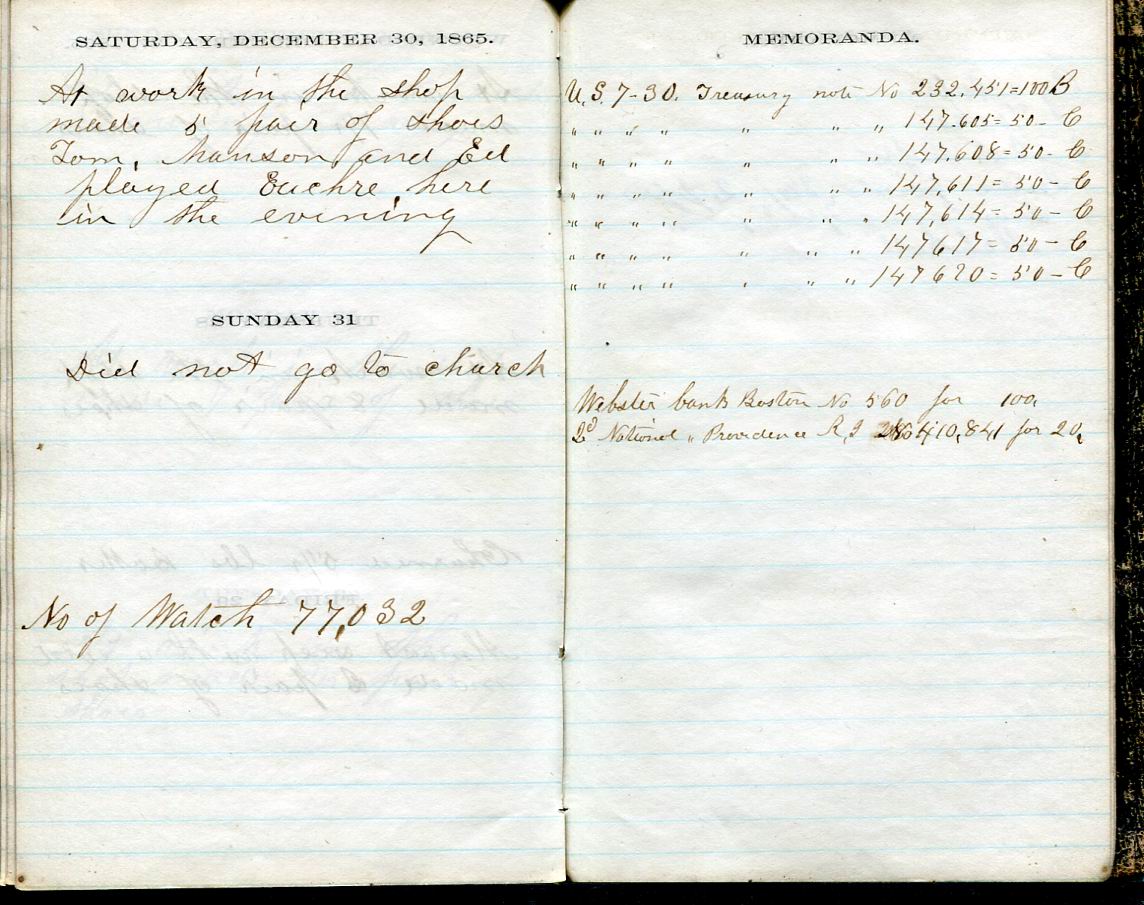 SATURDAY, DECEMBER 30, 1865.
At work in the shop
made 5 pair of shoes
Tom, Manson and Ed
played Euchre here
in the evening
SUNDAY 31
Did not go to church
No of Watch 77,032
MEMORANDA.
U.S. 7-30. Treasury note No 232.451=100 B
" " " " " " " 147.605=50- C
" " " " " " " 147.608=50- C
" " " " " " " 147,611=50- C
" " " " " " " 147,614=50- C
" " " " " " " 147617=50- C
" " " " " " " 147620=50- C
Webster bank Boston No 560 for 100,
2d National " Providence R,I No 410,841 for 20,